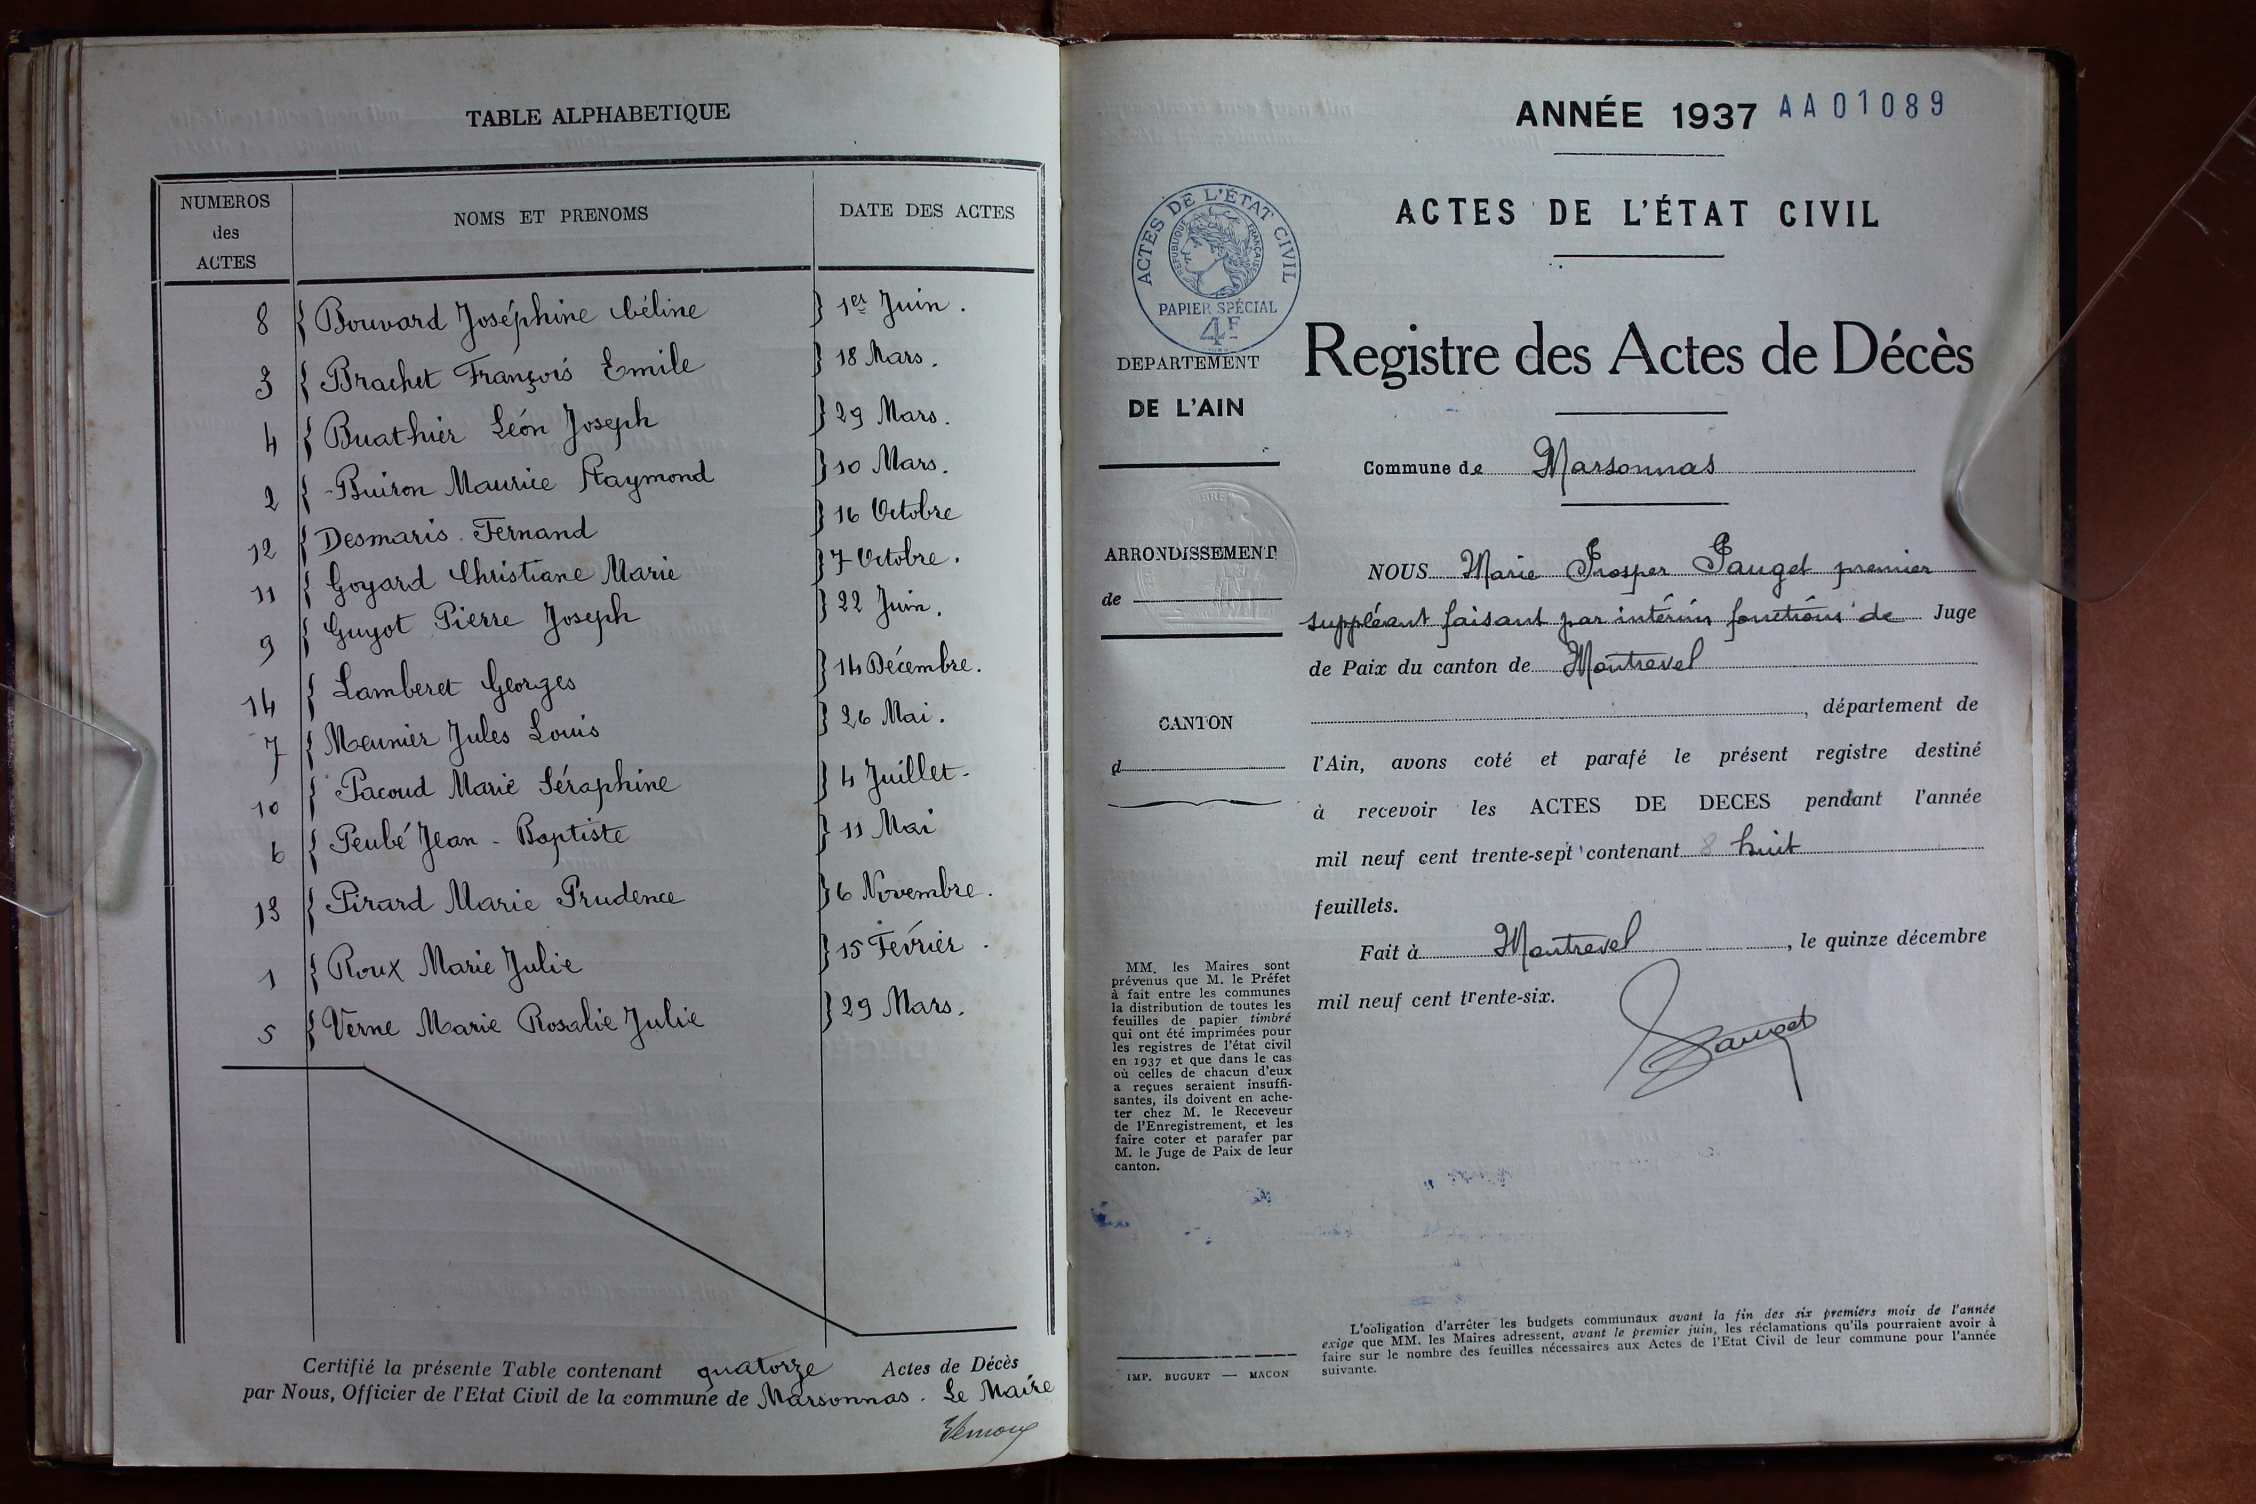 TABLE ALPHABETIQUE
NUMEROS
des
ACTES
NOMS ET PRENOMS
DATE DES ACTES
8 { Bouvard Joséphine Céline } 1er Juin.
3 { Brachet François Emile } 18 Mars.
4 { Buathier Léon Joseph } 29 Mars.
2 { Buiron Maurice Raymond } 10 Mars.
12 { Desmaris Fernand } 16 Octobre
11 { Goyard Christiane Marie } 7 Octobre.
9 { Guyot Pierre Joseph } 22 Juin.
14 { Lamberet Georges } 14 Décembre.
7 { Meunier Jules Louis } 26 Mai.
10 { Pacoud Marie Séraphine } 4 Juillet.
6 { Peubé Jean-Baptiste } 11 Mai
13 { Pirard Marie Prudence } 6 Novembre.
1 { Roux Marie Julie } 15 Février.
5 { Verne Marie Rosalie Julie } 29 Mars.
Certifié la présente Table contenant quatorze Actes de Décès
par Nous, Officier de l'Etat Civil de la commune de Marsonnas. Le Maire
ANNÉE 1937 AA01089
ACTES DE L'ÉTAT CIVIL
ACTES DE L'ÉTAT CIVIL
RÉPUBLIQUE FRANÇAISE
PAPIER SPÉCIAL
4F
DEPARTEMENT
DE L'AIN
ARRONDISSEMENT
de
CANTON
d
Registre des Actes de Décès
Commune de Marsonnas
NOUS Marie Prosper Pauget premier
suppléant faisant par intérim fonctions de Juge
de Paix du canton de Montrevel
, département de
l'Ain, avons coté et parafé le présent registre destiné
à recevoir les ACTES DE DECES pendant l'année
mil neuf cent trente-sept contenant 8 huit
feuillets.
Fait à Montrevel, le quinze décembre
mil neuf cent trente-six.
Pauget
MM. les Maires sont
prévenus que M. le Préfet
à fait entre les communes
la distribution de toutes les
feuilles de papier timbré
qui ont été imprimées pour
les registres de l'état civil
en 1937 et que dans le cas
où celles de chacun d'eux
a reçues seraient insuffi-
santes, ils doivent en ache-
ter chez M. le Receveur
de l'Enregistrement, et les
faire coter et parafer par
M. le Juge de Paix de leur
canton.
IMP. BUGUET — MACON
L'obligation d'arrêter les budgets communaux avant la fin des six premiers mois de l'année
exige que MM. les Maires adressent, avant le premier juin, les réclamations qu'ils pourraient avoir à
faire sur le nombre des feuilles nécessaires aux Actes de l'Etat Civil de leur commune pour l'année
suivante.